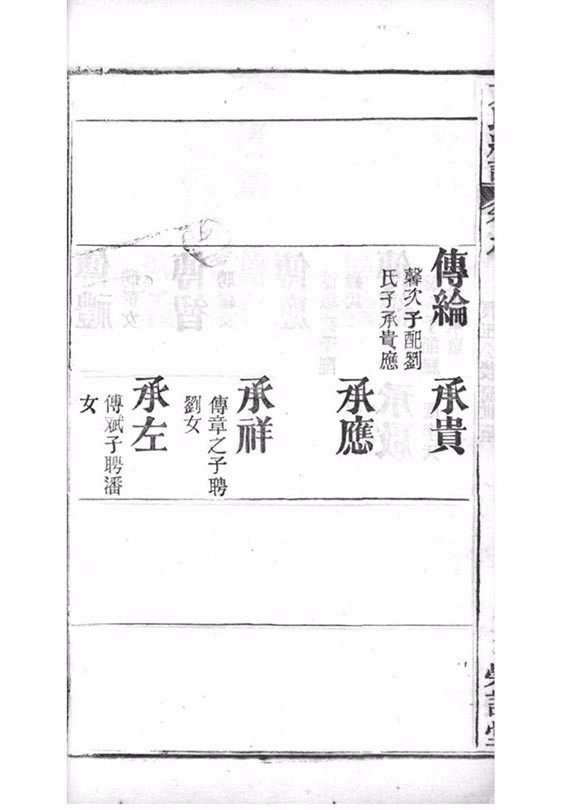 傳綸
馨次子配劉
氏子承貴應
承貴
承應
承祥
傳章之子聘
劉女
承左
傳斌子聘潘
女